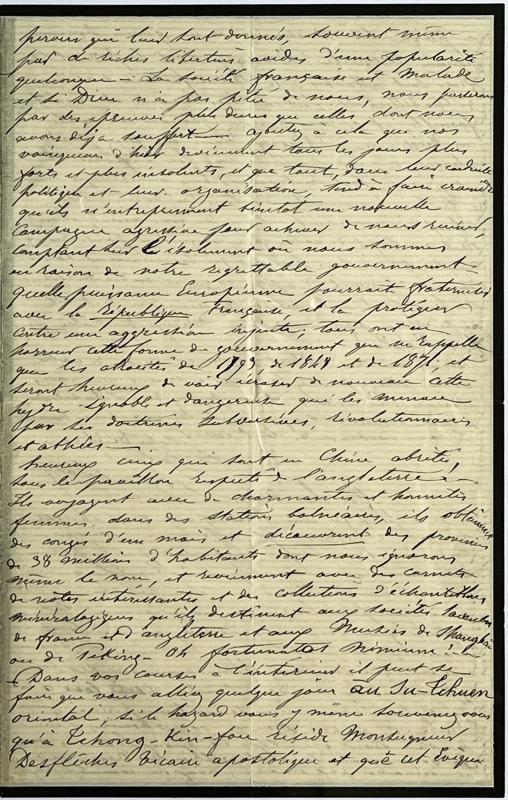 perous qui leur sont donnés, souvent même
par de riches libertins avides d'une popularité
quelconque — La société française est malade
et si Dieu n'a pas pitié de nous, nous passerons
par des épreuves plus dures que celles dont nous
avons déjà souffert — ajoutez à cela que nos
vainqueurs d'hier deviennent tous les jours plus
forts et plus insolents, et que tout, dans leur conduite
politique et leur organisation, tend à faire craindre
qu'ils n'entreprennent bientôt une nouvelle
campagne agressive pour achever de nous ruiner,
comptant sur l'isolement où nous sommes
en raison de notre regrettable gouvernement
quelle puissance Européenne pourrait fraterniser
avec la République Française, et la protéger
contre une aggression injuste; tous ont en
horreur cette forme de gouvernement qui ne rappelle
que les atrocités de 1793 de 1848 et de 1871, et
seront heureux de voir écraser de nouveau cette
hydre ignoble et dangereuse qui les menace
par ses doctrines subversives, révolutionnaires
et athées —
heureux ceux qui sont en Chine abrités
sous le pavillon respecté de l'angleterre —
Ils voyagent avec de charmantes et honnêtes
femmes dans des stations balnéaires, ils obtiennent
des congés d'un mois et découvrent des provinces
de 38 millions d'habitants dont nous ignorons
même le nom, et reviennent avec des carnets
de notes intéressantes et des collections d'échantillons
minéralogiques qu'ils destinent aux sociétés savantes
de france et d'angleterre et aux Musées de Shanghai
ou de Péking — Oh fortunatos nimium! —
— Dans vos courses à l'intérieur il peut se
faire que vous alliez quelque jour au Su-Tchuen
oriental, si le hazard vous y mène souvenez vous
qu'à Tchong-Kin-fou réside Monseigneur
Desflèches Vicaire apostolique et que cet Evêque